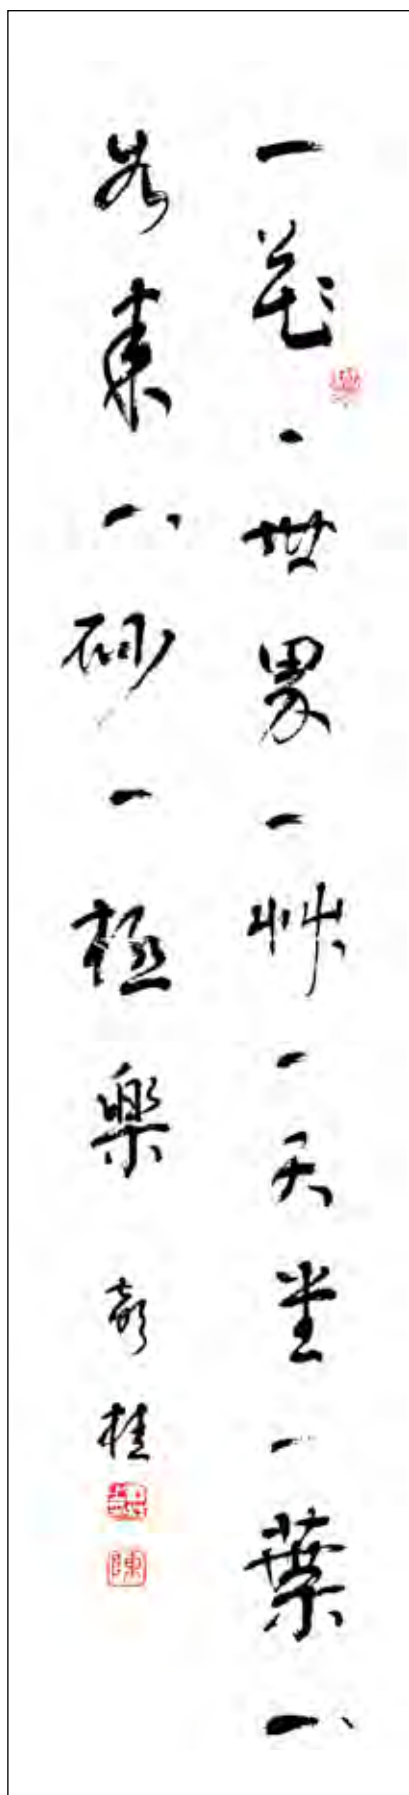 一花一世界一艸一天堂一葉一
如来一砂一極樂 彭桂
陳